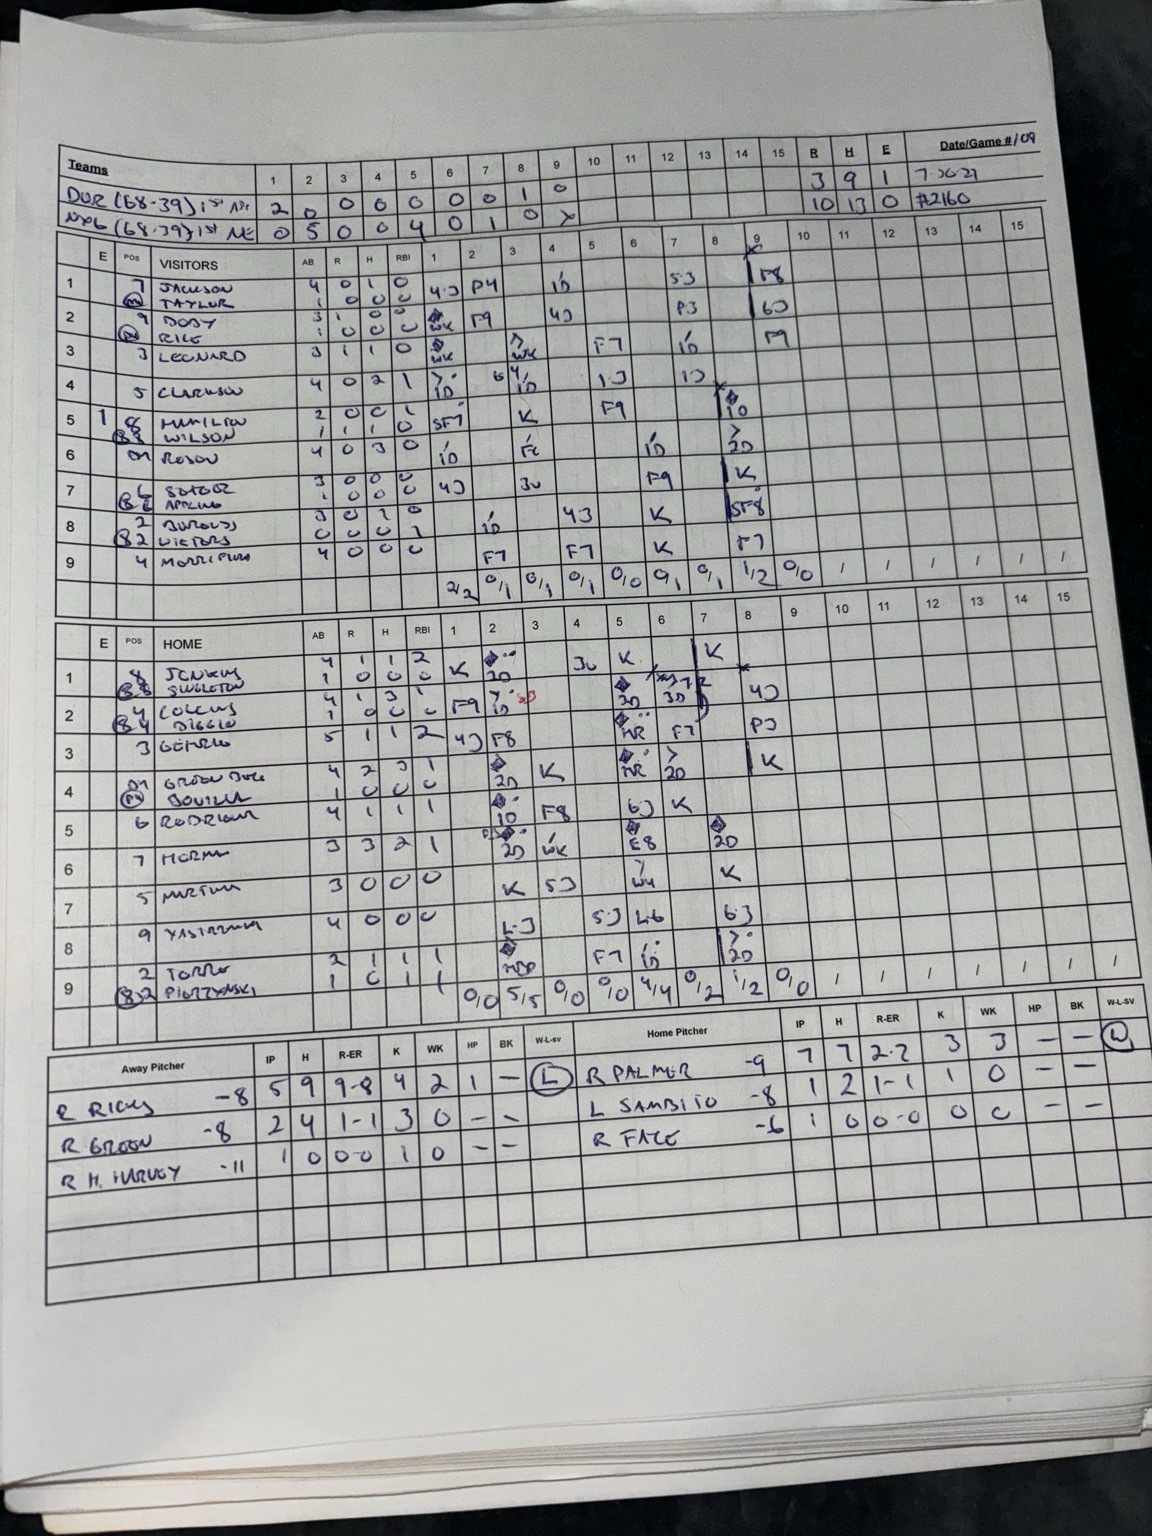 Teams 1 2 3 4 5 6 7 8 9 10 11 12 13 14 15 R H E Date/Game #/09
(68-39) 1st 2 0 0 0 0 0 0 1 0 3 9 1
(68-39) 1st NE 0 5 0 0 4 0 1 0 X 10 13 0 #2160
E POS VISITORS AB R H RBI 1 2 3 4 5 6 7 8 9 10 11 12 13 14 15
1 7 JACKSON 4 0 1 0 4J P4 1D 5J F8
TAYLOR 1 0 0 0
2 9 DOBY 3 1 0 0 WK F9 4J P3 6J
RICE 1 0 0 0
3 3 LEONARD 3 1 1 0 WK WK F7 1D F9
4 5 CLARKSON 4 0 2 1 1D 64 1D 1J 1J
5 1 8 HAMILTON 2 0 0 1 SF7 K F9 1D
88 WILSON 1 1 1 0
6 4 0 3 0 1D 1D 2D
7 6 3 0 0 0 4J 3U F9 K
APPLING 1 0 0 0
8 2 3 0 1 0 1D 43 K SF8
82 0 0 0 1
9 4 4 0 0 0 F7 F7 K F7
2/2 0/1 0/1 0/1 0/0 0/1 0/1 1/2 0/0 / / / / / /
E POS HOME AB R H RBI 1 2 3 4 5 6 7 8 9 10 11 12 13 14 15
1 8 JENKINS 4 1 1 2 K 2D 3U K K
88 SINGLETON 1 0 0 0
2 4 COLLINS 4 1 3 1 F9 1D 2D 3D 4J
84 BIGGIO 1 0 0 0
3 3 GEHRIG 5 1 1 2 4J F8 HR F7 P3
4 4 2 3 1 2D K HR 2D K
1 0 0 0
5 6 4 1 1 1 1D F8 6J K
6 7 3 3 2 1 2D WK E8 2D
7 5 3 0 0 0 K 5J WK K
8 9 4 0 0 0 L3 5J L6 6J
9 2 TORRE 2 1 1 1 HBP F7 1D 2D
82 PIERZYNSKI 1 0 1 1
0/0 5/5 0/0 0/0 4/4 0/2 1/2 0/0 / / / / / / /
Away Pitcher IP H R-ER K WK HP BK W-L-SV Home Pitcher IP H R-ER K WK HP BK W-L-SV
R -8 5 9 9-8 4 2 1 - L R PALMER -9 7 7 2-2 3 3 - - W
R GREEN -8 2 4 1-1 3 0 - - L SAMBITO -8 1 2 1-1 1 0 - -
R H. HARVEY -11 1 0 0-0 1 0 - - R FACE -6 1 0 0-0 0 0 - -